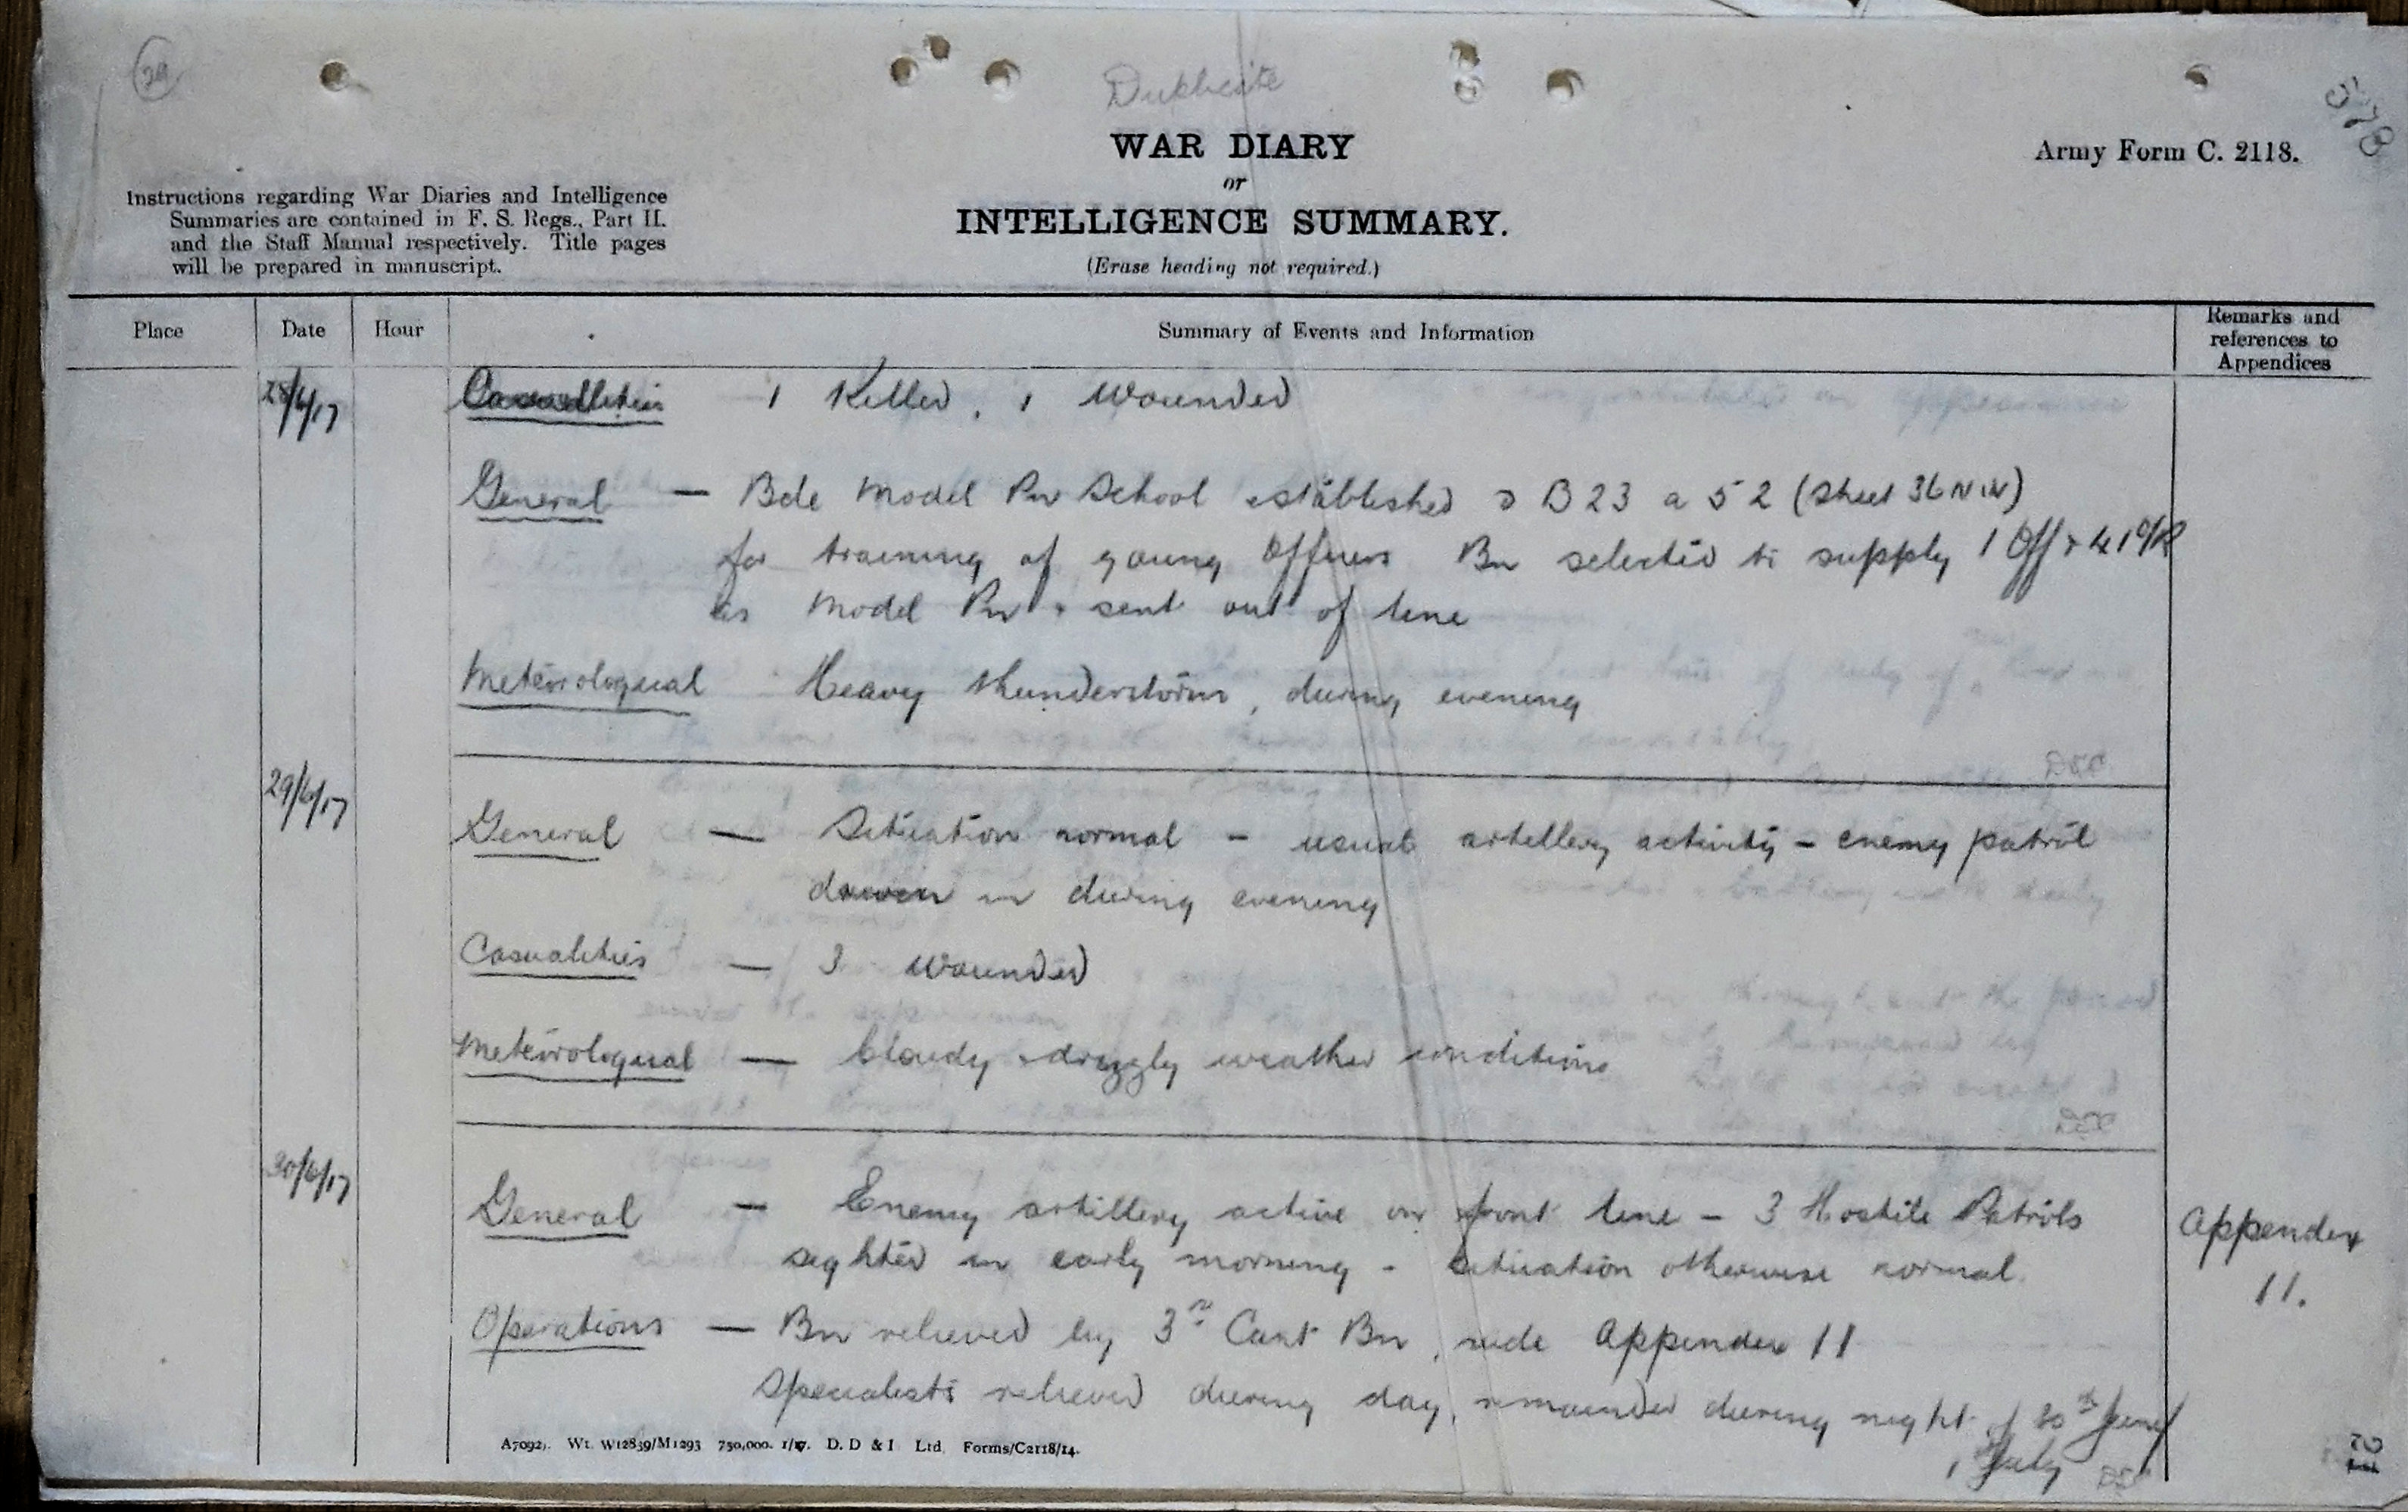 29
Duplicate
578
WAR DIARY
or
INTELLIGENCE SUMMARY.
(Erase heading not required.)
Army Form C. 2118.
Instructions regarding War Diaries and Intelligence
Summaries are contained in F. S. Regs., Part II.
and the Staff Manual respectively. Title pages
will be prepared in manuscript.
Place Date Hour Summary of Events and Information Remarks and references to Appendices
28/6/17 Casualties 1 Killed, 1 Wounded
General — Bde Model Pn School established B 23 a 5 2 (Sheet 36 NW)
for training of young Officers Bn selected to supply 1 Off & 41 O/R
as Model Pn & sent out of line
Meteorological Heavy thunderstorm, during evening
29/6/17
General — Situation normal - usual artillery activity - enemy patrol
driven in during evening
Casualties — 3 Wounded
Meteorological — Cloudy & drizzly weather conditions
30/6/17
General — Enemy artillery active on front line - 3 Hostile Patrols
sighted in early morning - Situation otherwise normal.
Appendix
11.
Operations — Bn relieved by 3rd Cant Bn, vide Appendix 11
Specialists relieved during day, remainder during night of 30th June/
1 July
A7092). Wt. W12839/M1293 750,000. 1/17. D. D & I Ltd. Forms/C2118/14.